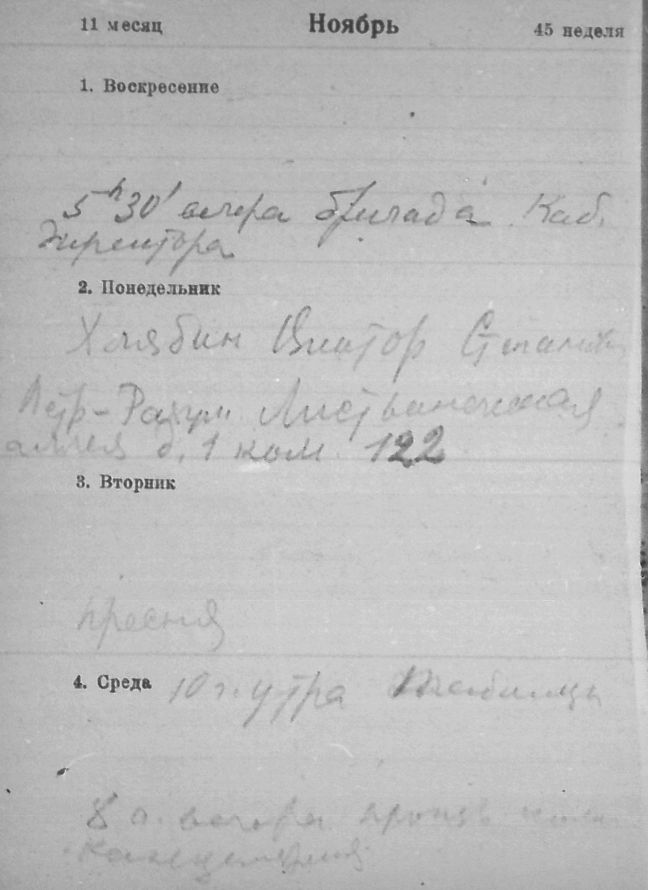 11 месяц Ноябрь 45 неделя
1. Воскресение
5 h 30' вечера бригада. Каб.
директора
2. Понедельник
Хлябин Виктор Степанович
Петр-Разум Лиственничная
аллея д. 1 ком. 122
3. Вторник
пресня
4. Среда 10 ч. утра
8 ч. вечера произв